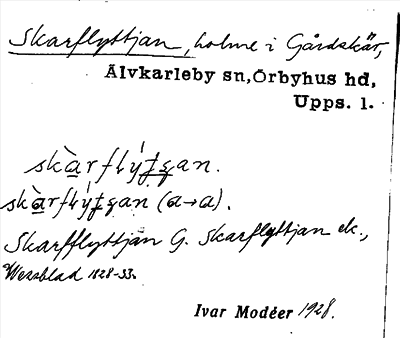 Skarflyttjan, holme i Gårdskär,
Älvkarleby sn, Örbyhus hd,
Upps. l.
skàrflýt̯g̯an.
skàrflýt̯g̯an (a→a).
Skarfflyttjan G. Skarflyttjan ek.,
Wessblad 1828-33.
Ivar Modéer 1928.